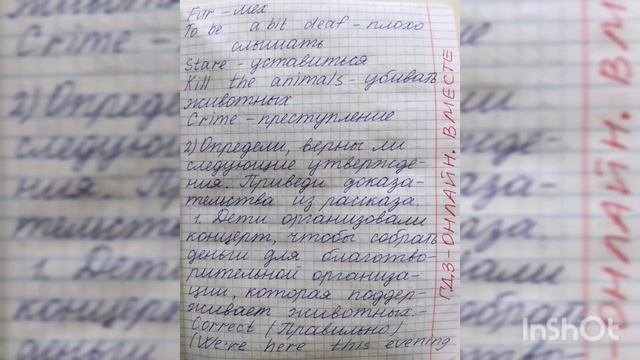 Fur - мех
To be a bit deaf - плохо
слышать
Stare - уставиться
Kill the animals - убивать
животных
Crime - преступление
2) Определи, верны ли
следующие утвержде-
ния. Приведи доказа-
тельства из рассказа.
1. Дети организовали
концерт, чтобы собрать
деньги для благотво-
рительной организа-
ции, которая поддер-
живает животных. -
Correct (Правильно)
(We're here this evening
ГДЗ-ОНЛАЙН. ВМЕСТЕ
InShOt